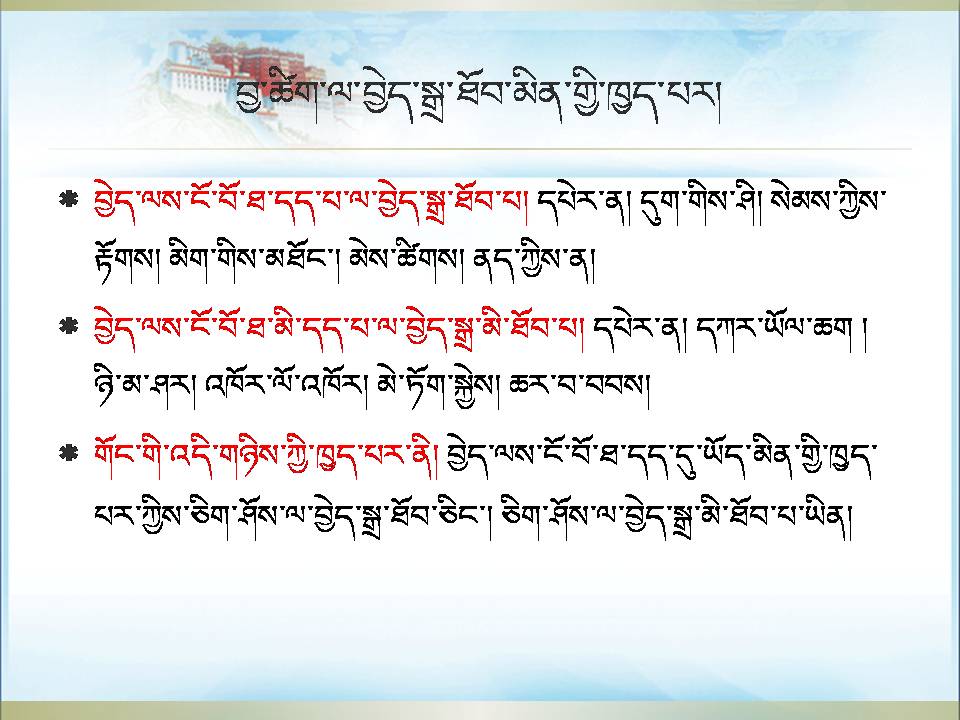 བྱ་ཚིག་ལ་བྱེད་སྒྲ་ཐོབ་མིན་གྱི་ཁྱད་པར།
བྱེད་ལས་ངོ་བོ་ཐ་དད་པ་ལ་བྱེད་སྒྲ་ཐོབ་པ། དཔེར་ན། དུག་གིས་ཤི། སེམས་ཀྱིས་
རྟོགས། མིག་གིས་མཐོང་། མེས་ཚིགས། ནད་ཀྱིས་ན།
བྱེད་ལས་ངོ་བོ་ཐ་མི་དད་པ་ལ་བྱེད་སྒྲ་མི་ཐོབ་པ། དཔེར་ན། དཀར་ཡོལ་ཆག །
ཉི་མ་ཤར། འཁོར་ལོ་འཁོར། མེ་ཏོག་སྐྱེས། ཆར་བ་བབས།
གོང་གི་འདི་གཉིས་ཀྱི་ཁྱད་པར་ནི། བྱེད་ལས་ངོ་བོ་ཐ་དད་དུ་ཡོད་མིན་གྱི་ཁྱད་
པར་ཀྱིས་ཅིག་ཤོས་ལ་བྱེད་སྒྲ་ཐོབ་ཅིང་། ཅིག་ཤོས་ལ་བྱེད་སྒྲ་མི་ཐོབ་པ་ཡིན།